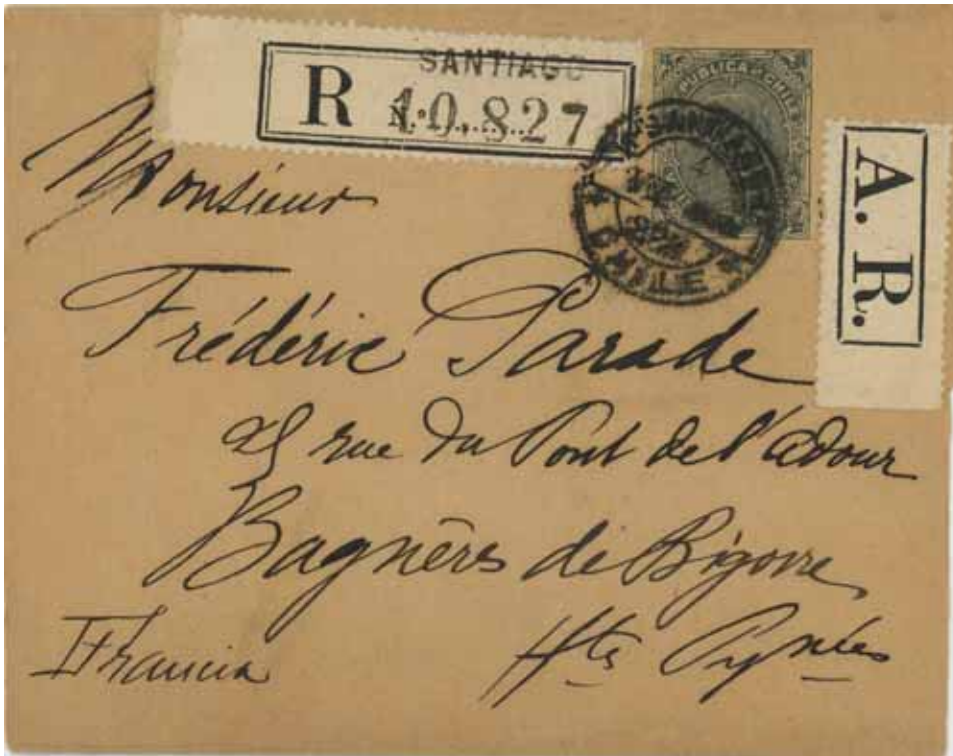 SANTIAGO
R 10.827
REPUBLICA DE CHILE
SANTIAGO
CHILE
A. R.
Monsieur
Frédéric Parade
25 rue du Pont de l'adour
Bagnères de Bigorre
Francia
Htes Pynées